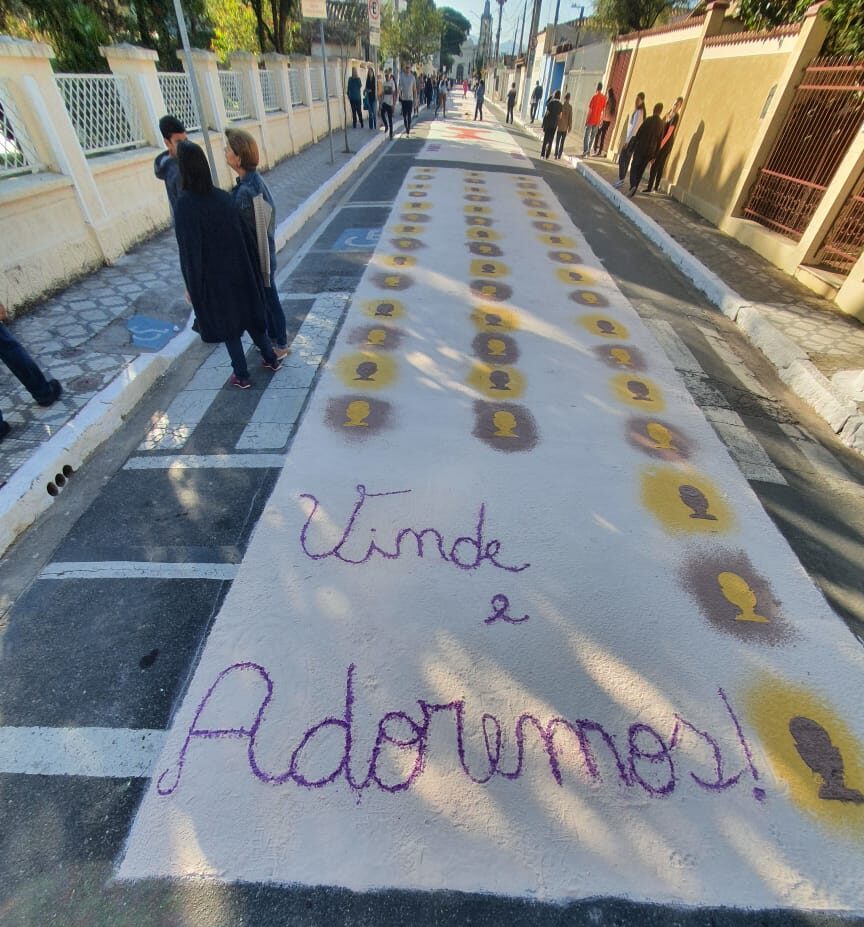 Vinde
e
Adoremos!